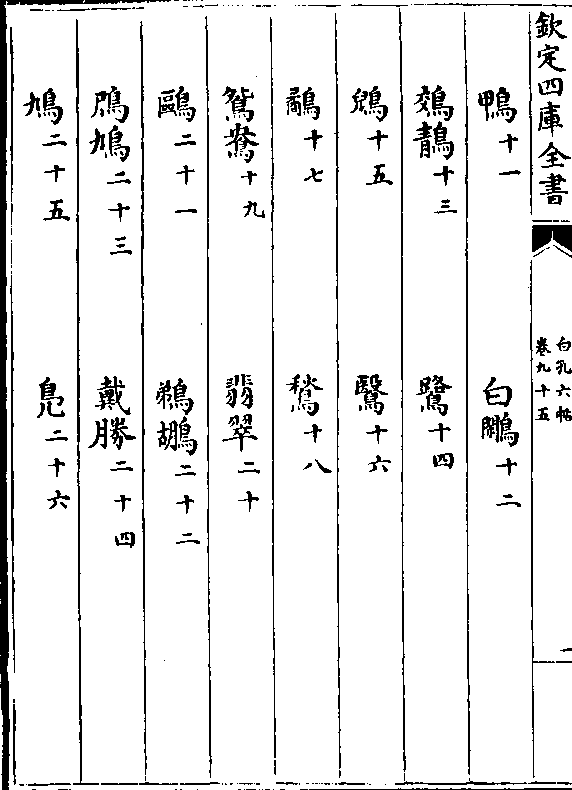 欽定四庫全書
白孔六帖
卷九十五
一
鴨十一 白鷴十二
鵁鶄十三 鷺十四
十五 鷖十六
鷸十七 鶖十八
鴛鴦十九 翡翠二十
鷗二十一 鵜鶘二十二
鳲鳩二十三 戴勝二十四
鳩二十五 鳧二十六